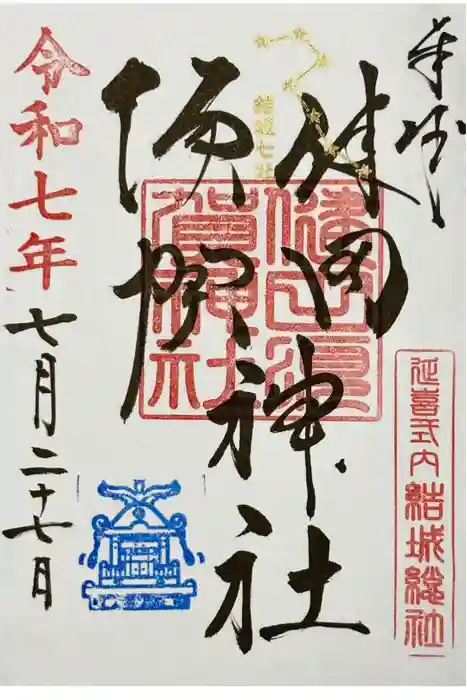 奉拝
延喜式内 結城総社
結城七社
健田神社
須賀神社
健田須
賀神社
令和七年七月二十七日